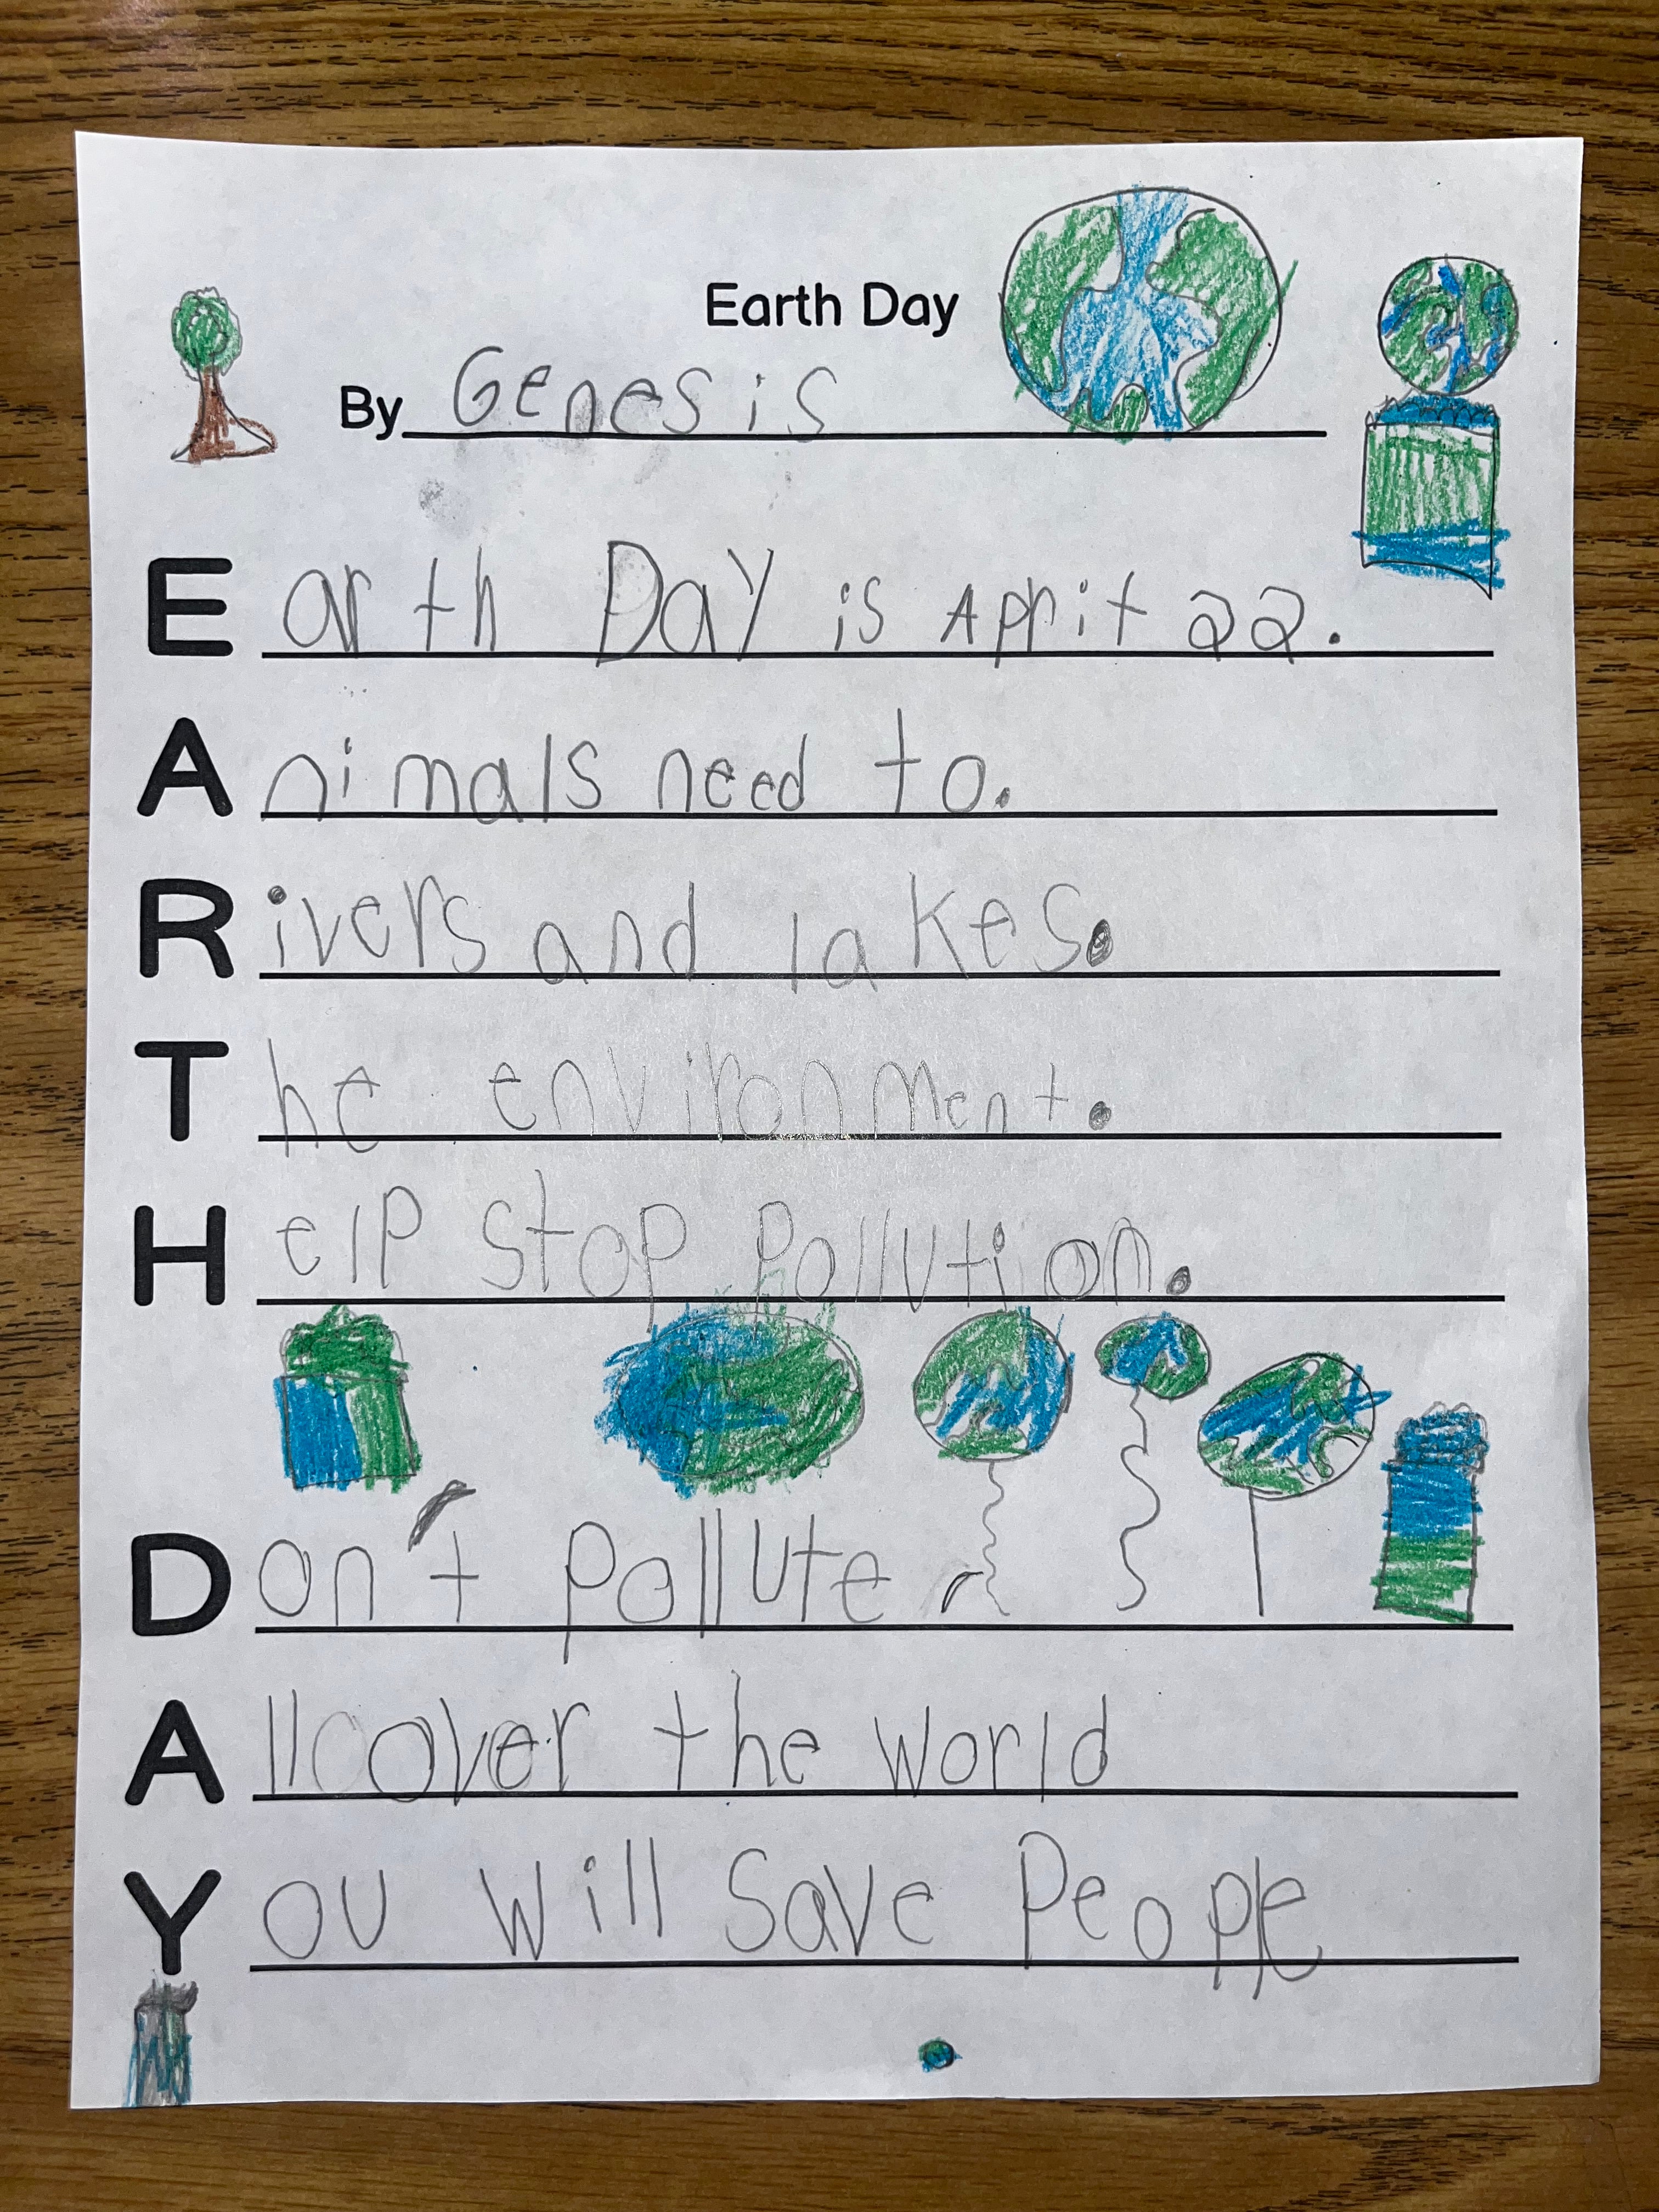 Earth Day
By Genesis
Earth Day is Apprit 22.
Animals need to.
Rivers and lakes.
The environment.
Help stop pollution.
Don't pollute
All over the world
You will save people